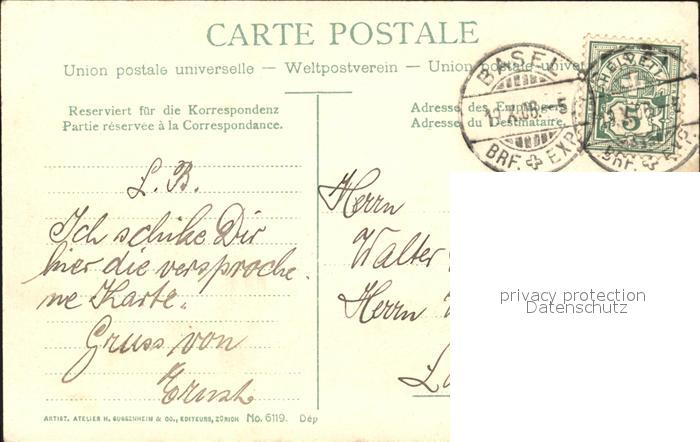 CARTE POSTALE
Union postale universelle — Weltpostverein — Union postale univer
Reserviert für die Korrespondenz
Partie réservée à la Correspondance.
Adresse des Empfängers
Adresse du Destinataire.
BASEL
BRF. EXP.
HELVETIA
5
L. B.
Ich schike Dir
hier die versproche
ne Karte.
Gruss von
Ernst
Herrn
Walter
Herrn
privacy protection
Datenschutz
ARTIST. ATELIER H. GUGGENHEIM & CO., EDITEURS, ZÜRICH No. 6119. Dép